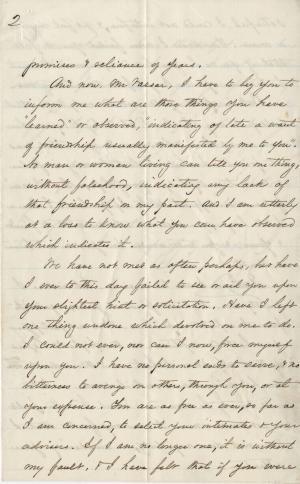 2
promises & reliance of years.
And now, Mr Vassar, I have to beg you to
inform me what are those things you have
"learned" or observed, "indicating of late a want
of friendship usually manifested by me to you."
No man or woman living can tell you one thing,
without falsehood, indicating any lack of
that friendship on my part. And I am utterly
at a loss to know what you can have observed
which indicates it.
We have not met as often, perhaps, but have
I even to this day failed to see or aid you upon
your slightest hint or solicitation. Have I left
one thing undone which devolved on me to do.
I could not ever, nor can I now, force myself
upon you. I have no personal ends to serve, & no
bitterness to avenge on others, through you, or at
your expense. You are as free as ever, so far as
I am concerned, to select your intimates & your
advisers. If I am no longer one, it is without
my fault, & I have felt that if you were